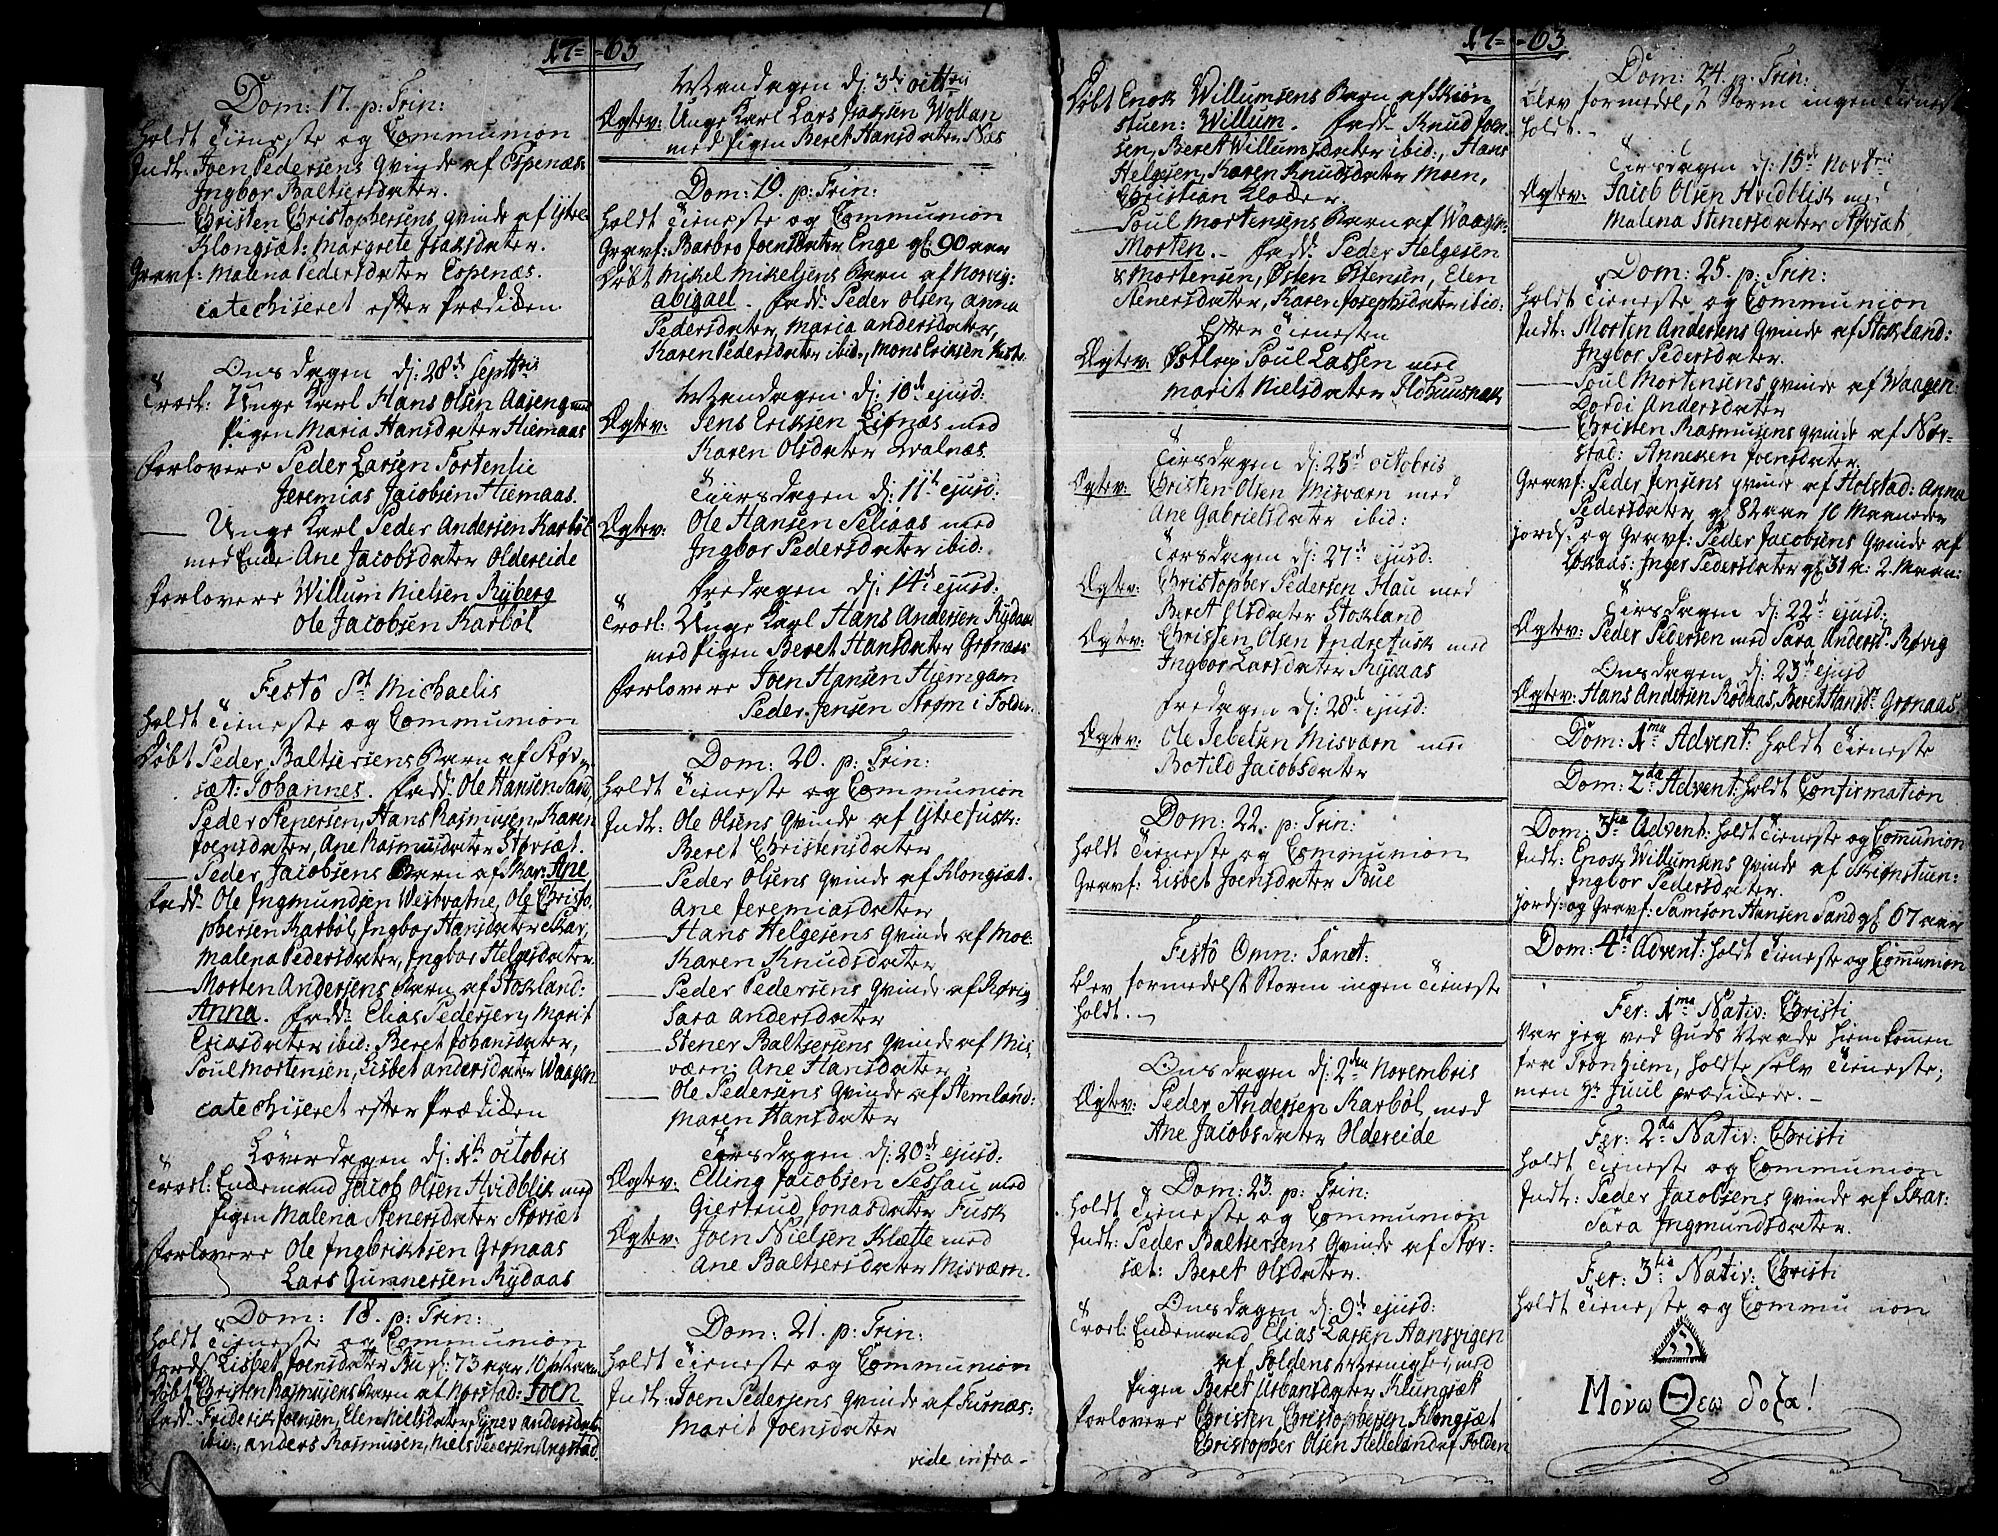 17=-63
Dom: 17. p: Trin:
holdt Tieneste og Communion
Indt: Joen Pedersens Qvinde af Espenæs:
Ingbor Baltsersdater.
— Christen Christophersens Qvinde af Ytre
Klongsæt: Margrete Isaksdater.
Gravf: Malena Pedersdater Espenæs.
catechiseret efter Prædiken
Onsdagen d: 28de Septbris
Trorl: Unge Karl Hans Olsen Aaseng med
Pigen Maria Hansdater Hiemaas
Forlovere Peder Larsen Tortenlie
Jeremias Jacobsen Hiemaas.
— Unge Karl Peder Andersen Karbøl
med Enke Ane Jacobsdater Oldereide
Forlovere Willum Nielsen Ryberg
Ole Jacobsen Karbøl
Festô St Michaelis
holdt Tieneste og Communion
Døbt Peder Baltsersens Barn af Støv-
sæt: Johannes. fadd: Ole Hansen Sand,
Peder Stenersen, Hans Rasmusen, Karen
Joensdater, Ane Rasmusdater Støvsæt.
— Peder Jacobsens Barn af Skar: Ane
fadd: Ole Ingmundsen Westvatne, Ole Christo-
phersen Karbøl, Ingbor Hansdater Skar,
Malena Pedersdater, Ingbor Helgesdater
— Morten Andersens Barn af Stokland:
Anna. fadd: Elias Pedersen, Marit
Eriksdater ibid: Beret Johansdater,
Poul Mortensen, Lisbet Andersdater Waagen
catechiseret efter Prædiken
Løverdagen d: 1te octobris
Trorl: Enkemand Jacob Olsen Hvidblik med
Pigen Malena Stenersdater Støvset
Forlovere Ole Ingbriktsen Grønaas
Lars Gunnersen Rydaas
Dom: 18. p: Trin:
holdt Tieneste og Communion
Jords: Lisbet Joensdater Bue gl: 73 aar 10 Maan
Døbt Christen Rasmusens Barn af Norstad: Joen
fadd: Friderik Joensen, Elen Nielsdater, Andersdat:
ibid:, Anders Rasmusen, Niels Pedersen Angstad
Mandagen d: 3de octbris
Ægtev: Unge Karl Lars Isaksen Wollan
med Pigen Beret Hansdater Næs
Dom: 19. p: Trin:
holdt Tieneste og Communion
Gravf: Barbro Joensdater Enge gl: 90 aar
Døbt Mikel Mikelsens Barn af Norvig:
Abigael. fadd: Peder Olsen, Anna
Pedersdater, Maria Andersdater,
Karen Pedersdater ibid:, Mons Eriksen
Mandagen d: 10de ejusd:
Ægtev: Jens Eriksen Lifnæs med
Karen Olsdater Walnæs
Tiirsdagen d: 11te ejusd:
Ægtev: Ole Hansen Seliaas med
Ingbor Pedersdater ibid:
fredagen d: 14de ejusd:
Trorl: Unge Karl Hans Andersen Rydaas
med Pigen Beret Hansdater Grønaas
Forlovere Joen Hansen Hiemgam
Peder Jensen Strøm i Folden.
Dom: 20. p: Trin:
holdt Tieneste og Communion
Indt: Ole Olsens Qvinde af Ytrefusk:
Beret Christensdater
— Peder Olsens Qvinde af Klongsæt.
Ane Jeremiasdater
— Hans Helgesens Qvinde af Moe
Karen Knudsdater
— Peder Pedersens Qvinde af Røvig
Sara Andersdater
— Stener Baltsersens Qvinde af Mis-
værn: Ane Hansdater
— Ole Pedersens Qvinde af Stemland:
Maren Hansdater
Torsdagen d: 20de ejusd:
Ægtev: Elling Jacobsen Sessau med
Giertrud Jonasdater Fusk
Ægtev: Joen Nielsen Klætte med
Ane Baltsersdater Misværn.
Dom: 21. p: Trin:
holdt Tieneste og Communion
Indt: Joen Pedersens Qvinde af Furnæs:
Marit Joensdater
vide infra-
17=-63
Døbt Enok Willumsens Barn af Skiøn-
stuen: Willum. fadd: Knud Joen-
sen, Beret Willumsdater ibid:, Hans
Helgesen, Karen Knudsdater Moen,
Christian Klader.
— Poul Mortensens Barn af Waagen:
Morten. - fadd: Peder Helgesen
& Mortensen, Østen Østensen, Elen
Stenersdater, Karen Josephsdater ibid:
Efter Tienesten
Ægtev: Østlap Poul Lassen med
Marit Nielsdater
Tirsdagen d: 25de octobris
Ægtev: Christen Olsen Misværn med
Ane Gabrielsdater ibid:
Torsdagen d: 27de ejusd:
Ægtev: Christopher Pedersen Hau med
Beret Olsdater Stokland
Ægtev: Christen Olsen Indrefusk med
Ingbor Larsdater Rydaas
fredagen d: 28de ejusd:
Ægtev: Ole Jebelsen Misværn med
Botild Jacobsdater
Dom: 22. p: Trin:
holdt Tieneste og Communion
Gravf: Lisbet Joensdater Bue
Festô Omn: Sanct:
blev formedelst Storm ingen Tieneste
holdt. -
Onsdagen d: 2den Novembris
Ægtev: Peder Andersen Karbøl med
Ane Jacobsdater Oldereide
Dom: 23. p: Trin:
holdt Tieneste og Communion
Indt: Peder Baltsersens Qvinde af Støv-
sæt: Beret Olsdater.
Onsdagen d: 9de ejusd:
Trorl: Enkemand Elias Larsen Aansvigen
af Foldens Menighed, med
Pigen Beret Urbansdater Klungsæt
Forlovere Christen Christophersen Klongsæt
Christopher Olsen Helleland af Folden
Dom: 24. p: Trin:
blev formedelst Storm ingen Tieneste
holdt. -
Tirsdagen d: 15de Novbris
Ægtev: Jacob Olsen Hvidblik med
Malena Stenersdater Støvsæt
Dom: 25. p: Trin:
holdt Tieneste og Communion
Indt: Morten Andersens Qvinde af Stokland:
Ingbor Pedersdater.
— Poul Mortensens Qvinde af Waagen:
Dordi Andersdater
— Christen Rasmusens Qvinde af Nor-
stad: Anneken Joensdater.
Gravf: Peder Jensens Qvinde af Holstad: Anna
Pedersdater gl 82 aar 10 Maaneder
Jords: og Gravf: Peder Jacobsens Qvinde af
Løkaas: Inger Pedersdater gl: 31 A: 2. Maan:
Tirsdagen d: 22de ejusd:
Ægtev: Peder Pedersen med Sara Andersdr Røvig
Onsdagen d: 23de ejusd
Ægtev: Hans Andersen Rødaas, Beret Hansdr Grønaas.
Dom: 1ma Advent: holdt Tieneste
Dom: 2da Advent: holdt Confirmation
Dom: 3tia Advent: holdt Tieneste og Comunion
Indt: Enok Willumsens Qvinde af Skiønstuen:
Ingbor Pedersdater.
Jords: og Gravf: Samson Hansen Sand gl: 67 aar
Dom: 4ta Advent: holdt Tieneste og Comunion
Fer: 1ma Nativ: Christi
Var jeg ved Guds Naade hiem komen
fra Tronhiem, holdte selv Tieneste;
men Hr Juul prædikede. -
Fer: 2da Nativ: Christi
holdt Tieneste og Communion
Indt: Peder Jacobsens Qvinde af Skar:
Sara Ingmundsdater.
Fer: 3tia Nativ: Christi
holdt Tieneste og Communion
Μονω Θεω δοξα!